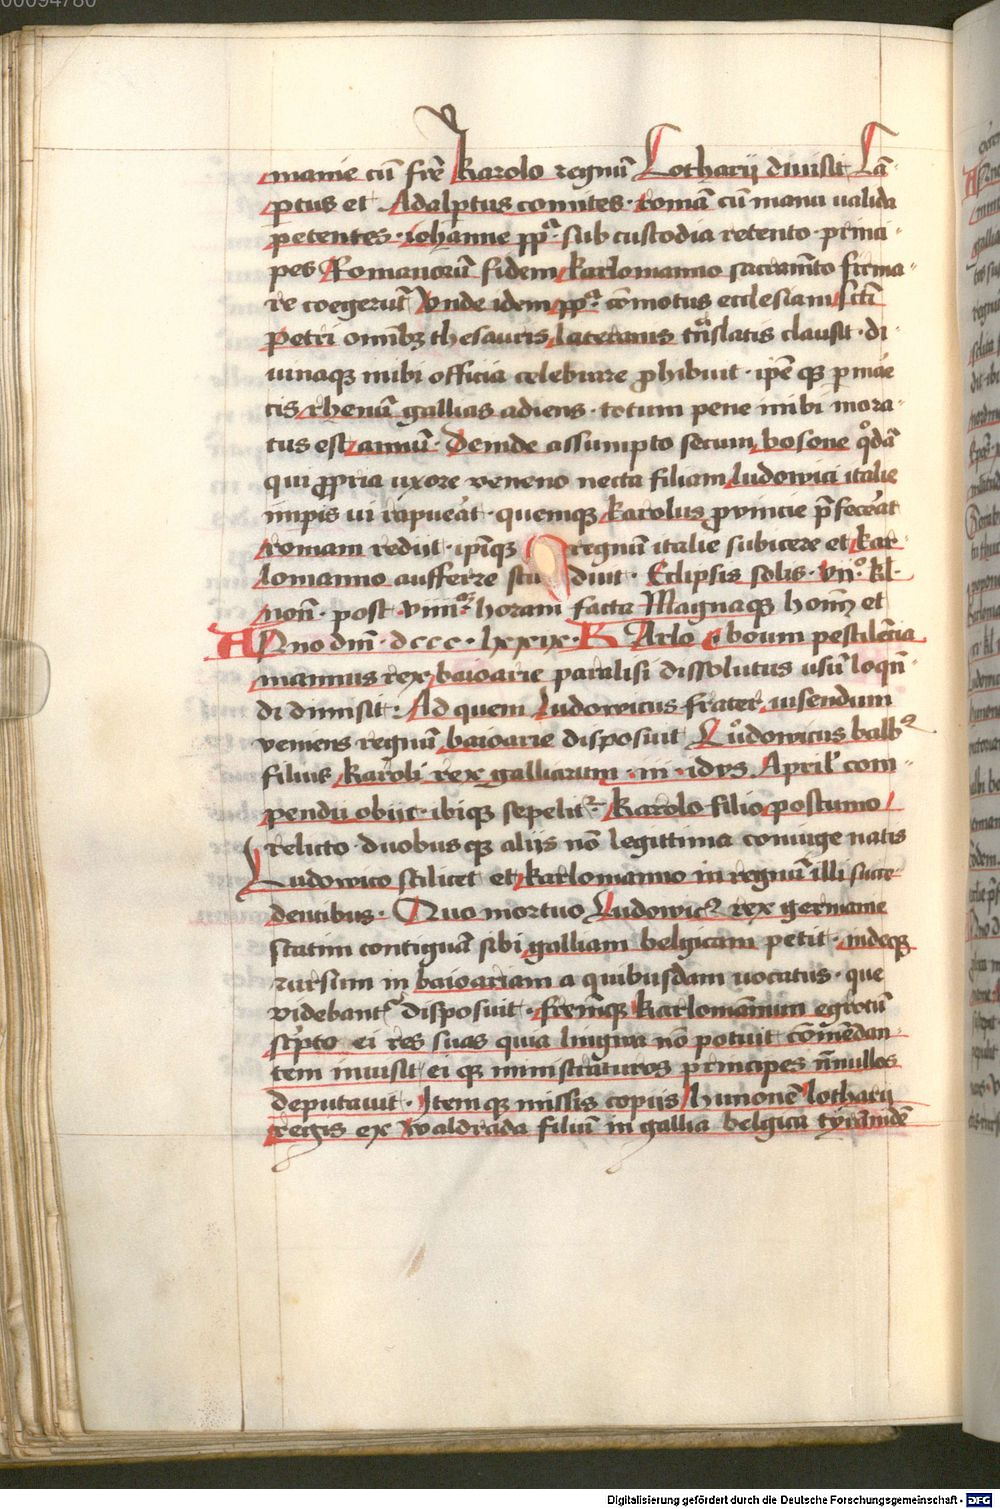 00094780
manie cū frē Karolo regnū Lotharij diuisit Lā-
ptus et Adalptus comites · romā cū manu ualida
petentes · iohanne pp͞a · sub custodia retento · princi-
pes Romanorū fidem karlomanno sacramto firma-
re coegerūt Vnde idem pp͞a cōmotus ecclesiam scti
Petri omībꝫ thesauris lateranis trāslatis clausit · di-
uinaqꝫ inibi officia celebrare ꝓhibuit · ipē qꝫ
rhenū gallias adiens · totum pene inibi mora-
tus est annū · Deinde assumpto secum bosone qͦdā
qui ꝓpria uxore veneno necta filiam ludowici italie
impis ui rapueāt · quemqꝫ Karolus ꝓuincie p̄feceāt
romam redijt · ipīqꝫ regnum italie subicere et kar-
lomanno aufferre stu duit · Eclipsis solis · vii° kl ·
nou͞ · post · viiii · horam facta Magnaqꝫ homī et
ANno dnī · dccc · lxxix · KArlo boum pestilētia
mannus rex baioarie paralisi dissolutus usū loqn̄-
di dimisit · Ad quem Ludowicus frater uisendum
veniens regnū baioarie disposuit Lůdowicus balbꝰ
filius Karoli rex galliarum · iii · idvs April' com-
pendij obijt · ibiqꝫ sepelitᷣ · Karolo filio postumo
relicto · duobus qꝫ alijs nō legittima coniuge natis
Ludowico scilicet et karlomanno in regnū illi succe-
dentibus · Quo mortuo Ludowicꝰ rex germanie
statim contiguā sibi galliam belgicam petit · indeqꝫ
rursum in baioariam a quibusdam uocatus · que
videbantᷣ disposuit · fremqꝫ Karlomānum egrotū
scpto ei res suas quia lingwa nō potuit cōmēdan-
tem inuisit ei qꝫ ministraturos principes nōnullos
deputauit · Itemqꝫ missis copijs hunonē lotharij
regis ex waldrada filiū in gallia belgica tyrānidē
Digitalisierung gefördert durch die Deutsche Forschungsgemeinschaft - DFG